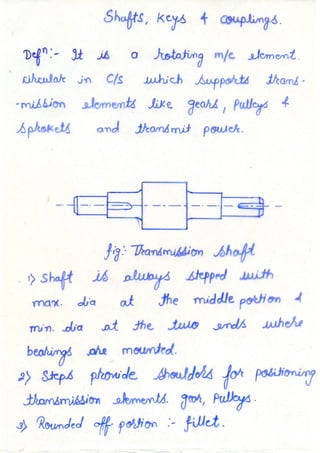 Shafts, Keys & couplings.
Defⁿ:- It is a rotating m/c element.
circular in C/S which supports trans-
-mission elements like gears, Pulleys &
Sprokets and transmit power.
fig:- Transmission shaft
1) Shaft is always stepped with
max. dia at the middle portion &
min. dia at the two ends where
bearings are mounted.
2) Steps provide shoulders for positioning
transmission elements. gear, Pulleys.
3) Rounded off portion :- fillet.